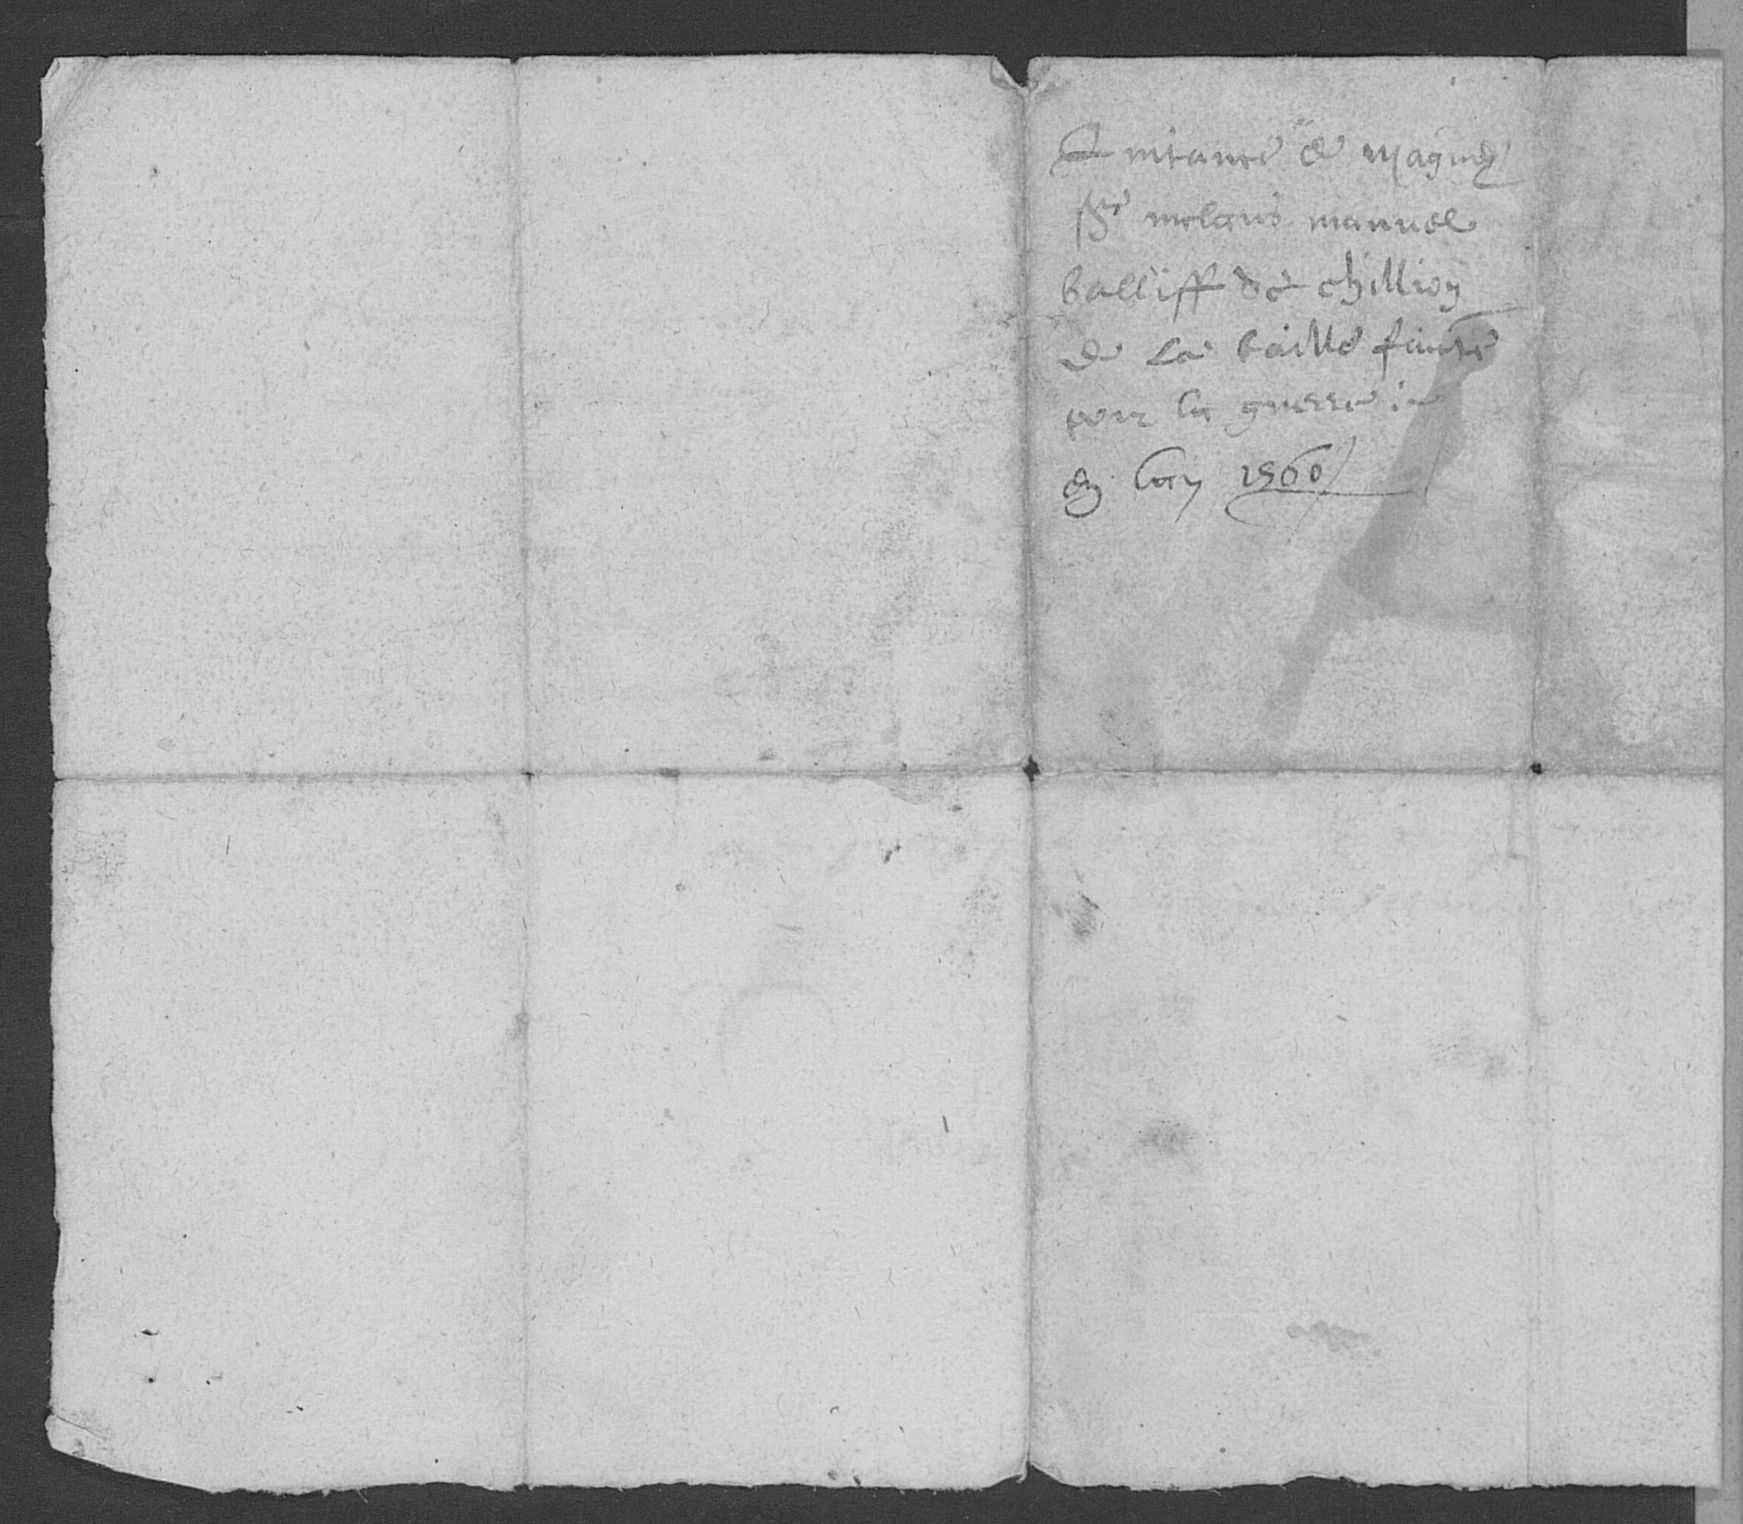 Quitance de Magnif
Sgr niclaus manuel
balliff de chillion
de la taille faicte
pour la guerre
en lan 1560